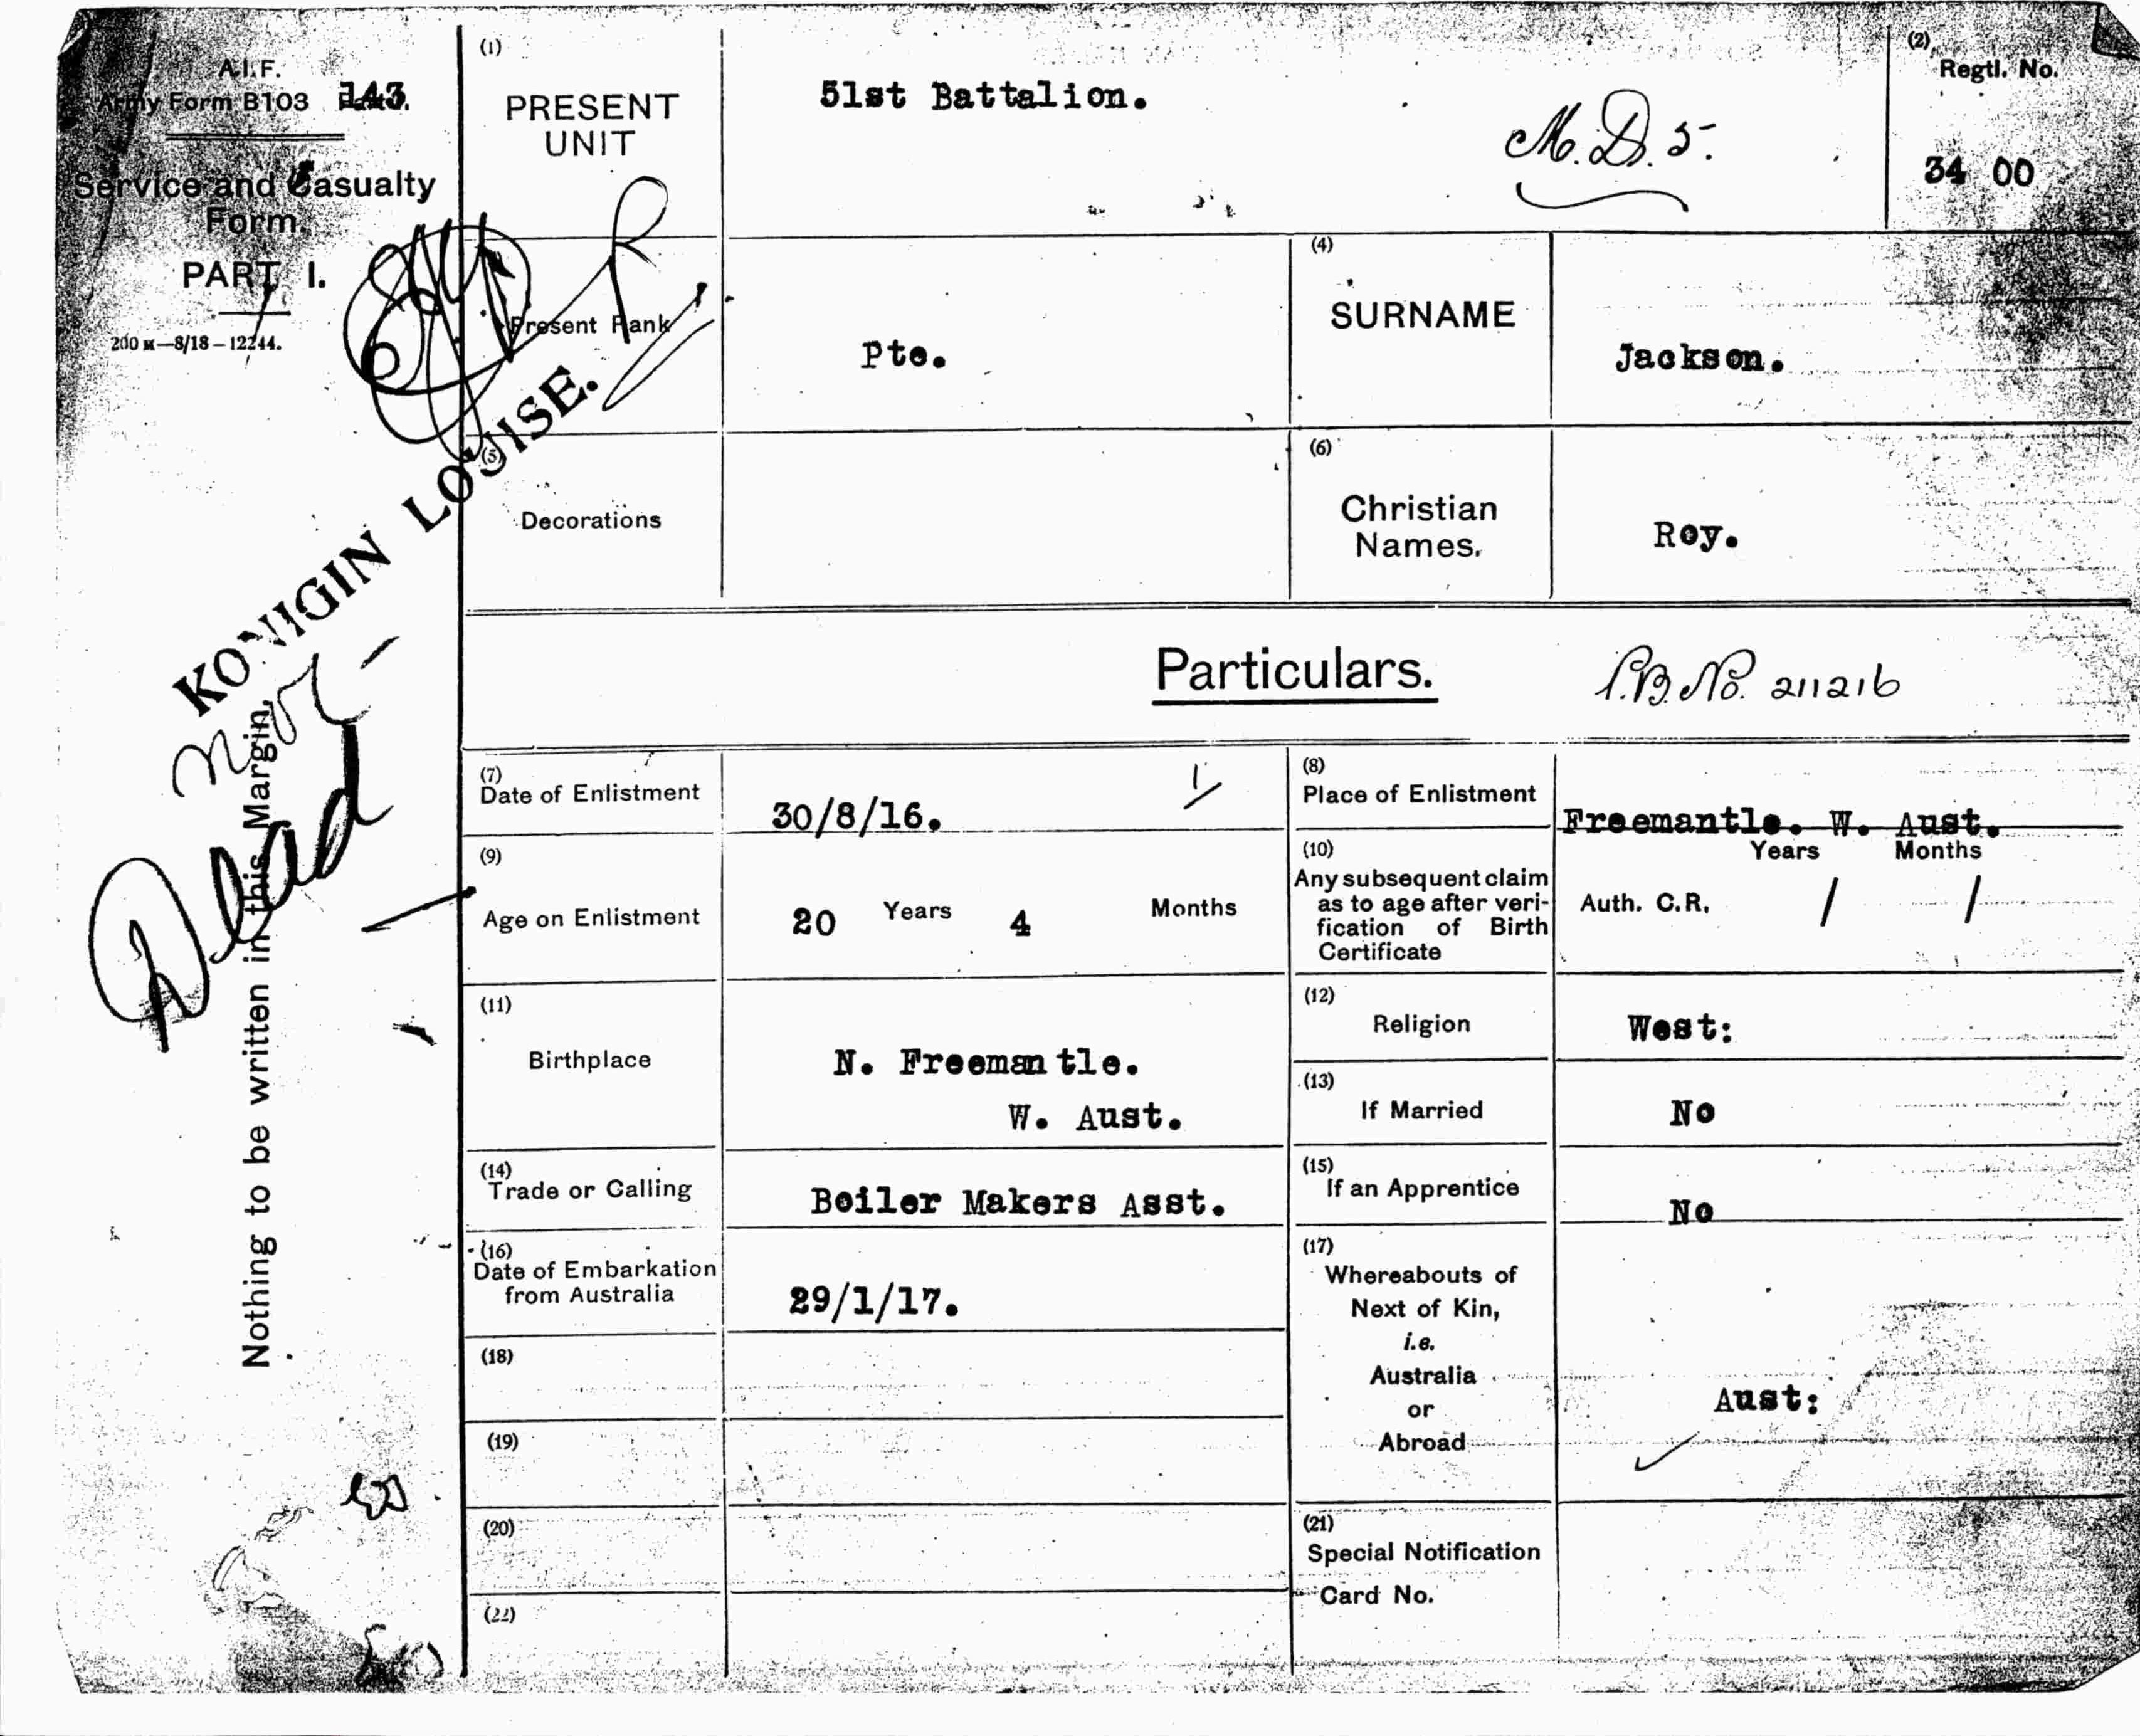 A.I.F.
Army Form B103 143.
Service and Casualty
Form.
PART I.
200 M—8/18—12244.
(1)
PRESENT
UNIT
51st Battalion.
M.D. 5.
(2)
Regtl. No.
34 00
Present Rank
Pte.
(4)
SURNAME
Jackson.
KONIGIN LOUISE.
(5)
Decorations
(6)
Christian
Names.
Roy.
Particulars.
P.B. No. 211216
Dead
Nothing to be written in this Margin.
(7)
Date of Enlistment
30/8/16.
(8)
Place of Enlistment
Freemantle. W. Aust.
(9)
Age on Enlistment
20 Years 4 Months
(10)
Any subsequent claim
as to age after veri-
fication of Birth
Certificate
Years Months
Auth. C.R. / /
(11)
Birthplace
N. Freemantle.
W. Aust.
(12)
Religion
West:
(13)
If Married
No
(14)
Trade or Calling
Boiler Makers Asst.
(15)
If an Apprentice
No
(16)
Date of Embarkation
from Australia
29/1/17.
(17)
Whereabouts of
Next of Kin,
i.e.
Australia
or
Abroad
Aust:
(18)
(19)
(20)
(21)
Special Notification
Card No.
(22)